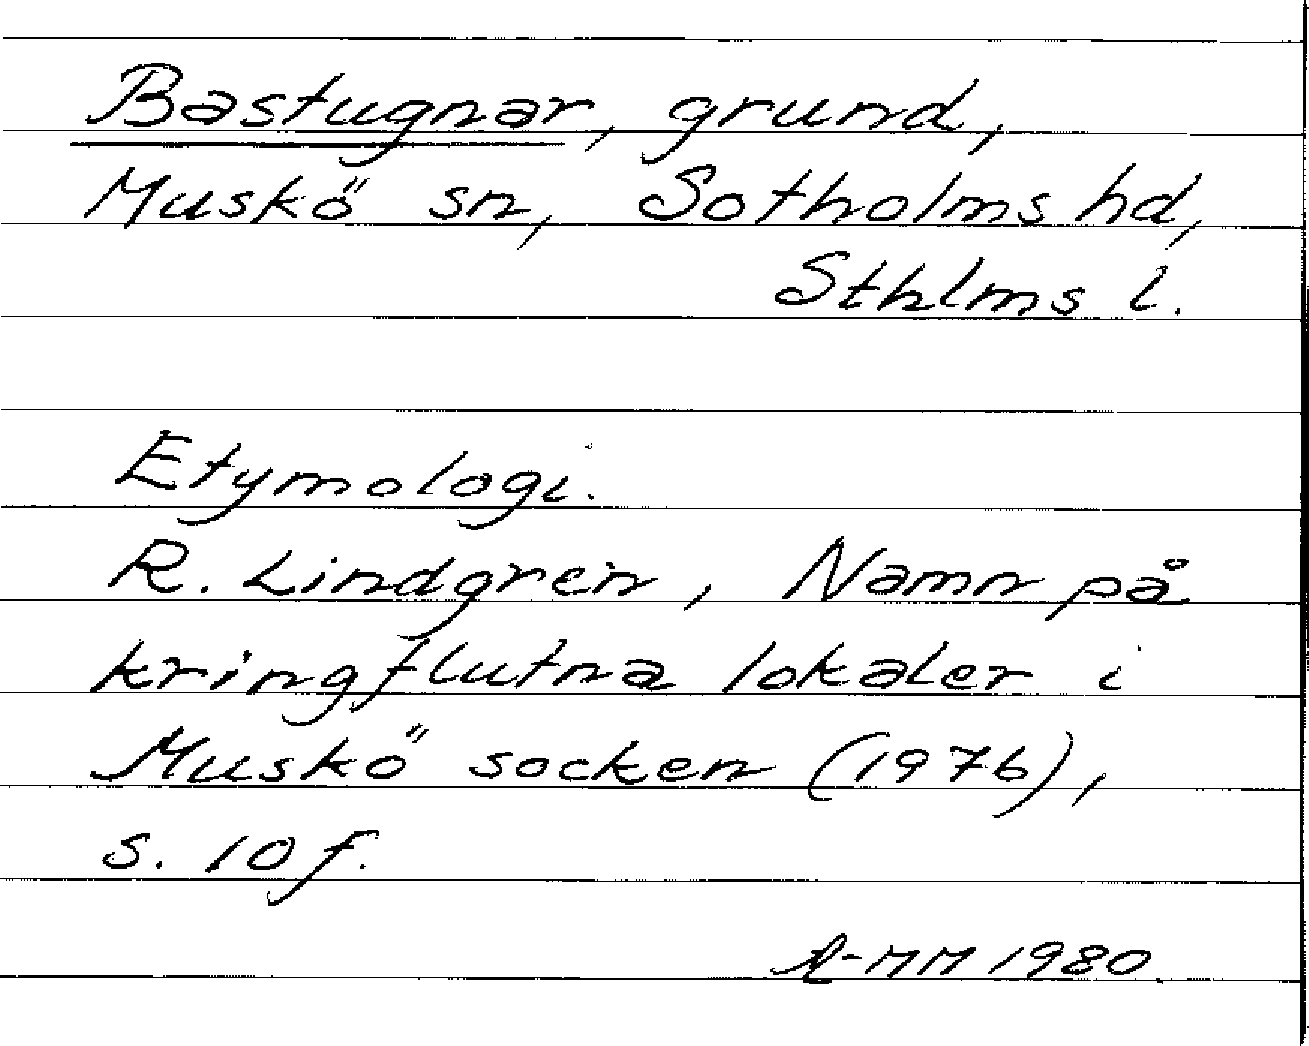 Bastugnar, grund,
Muskö sn, Sotholms hd,
Sthlms l.
Etymologi.
R. Lindgren, Namn på
kringflutna lokaler i
Muskö socken (1976),
s. 10 f.
A-MM 1980